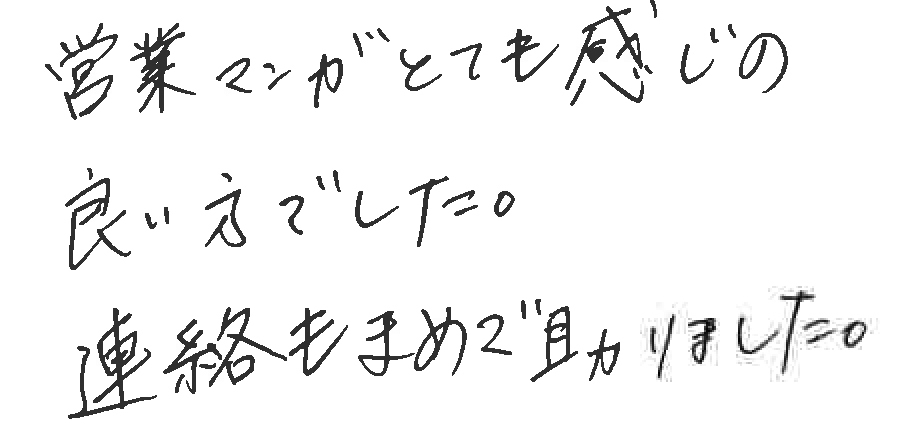 営業マンがとても感じの
良い方でした。
連絡もまめで助かりました。